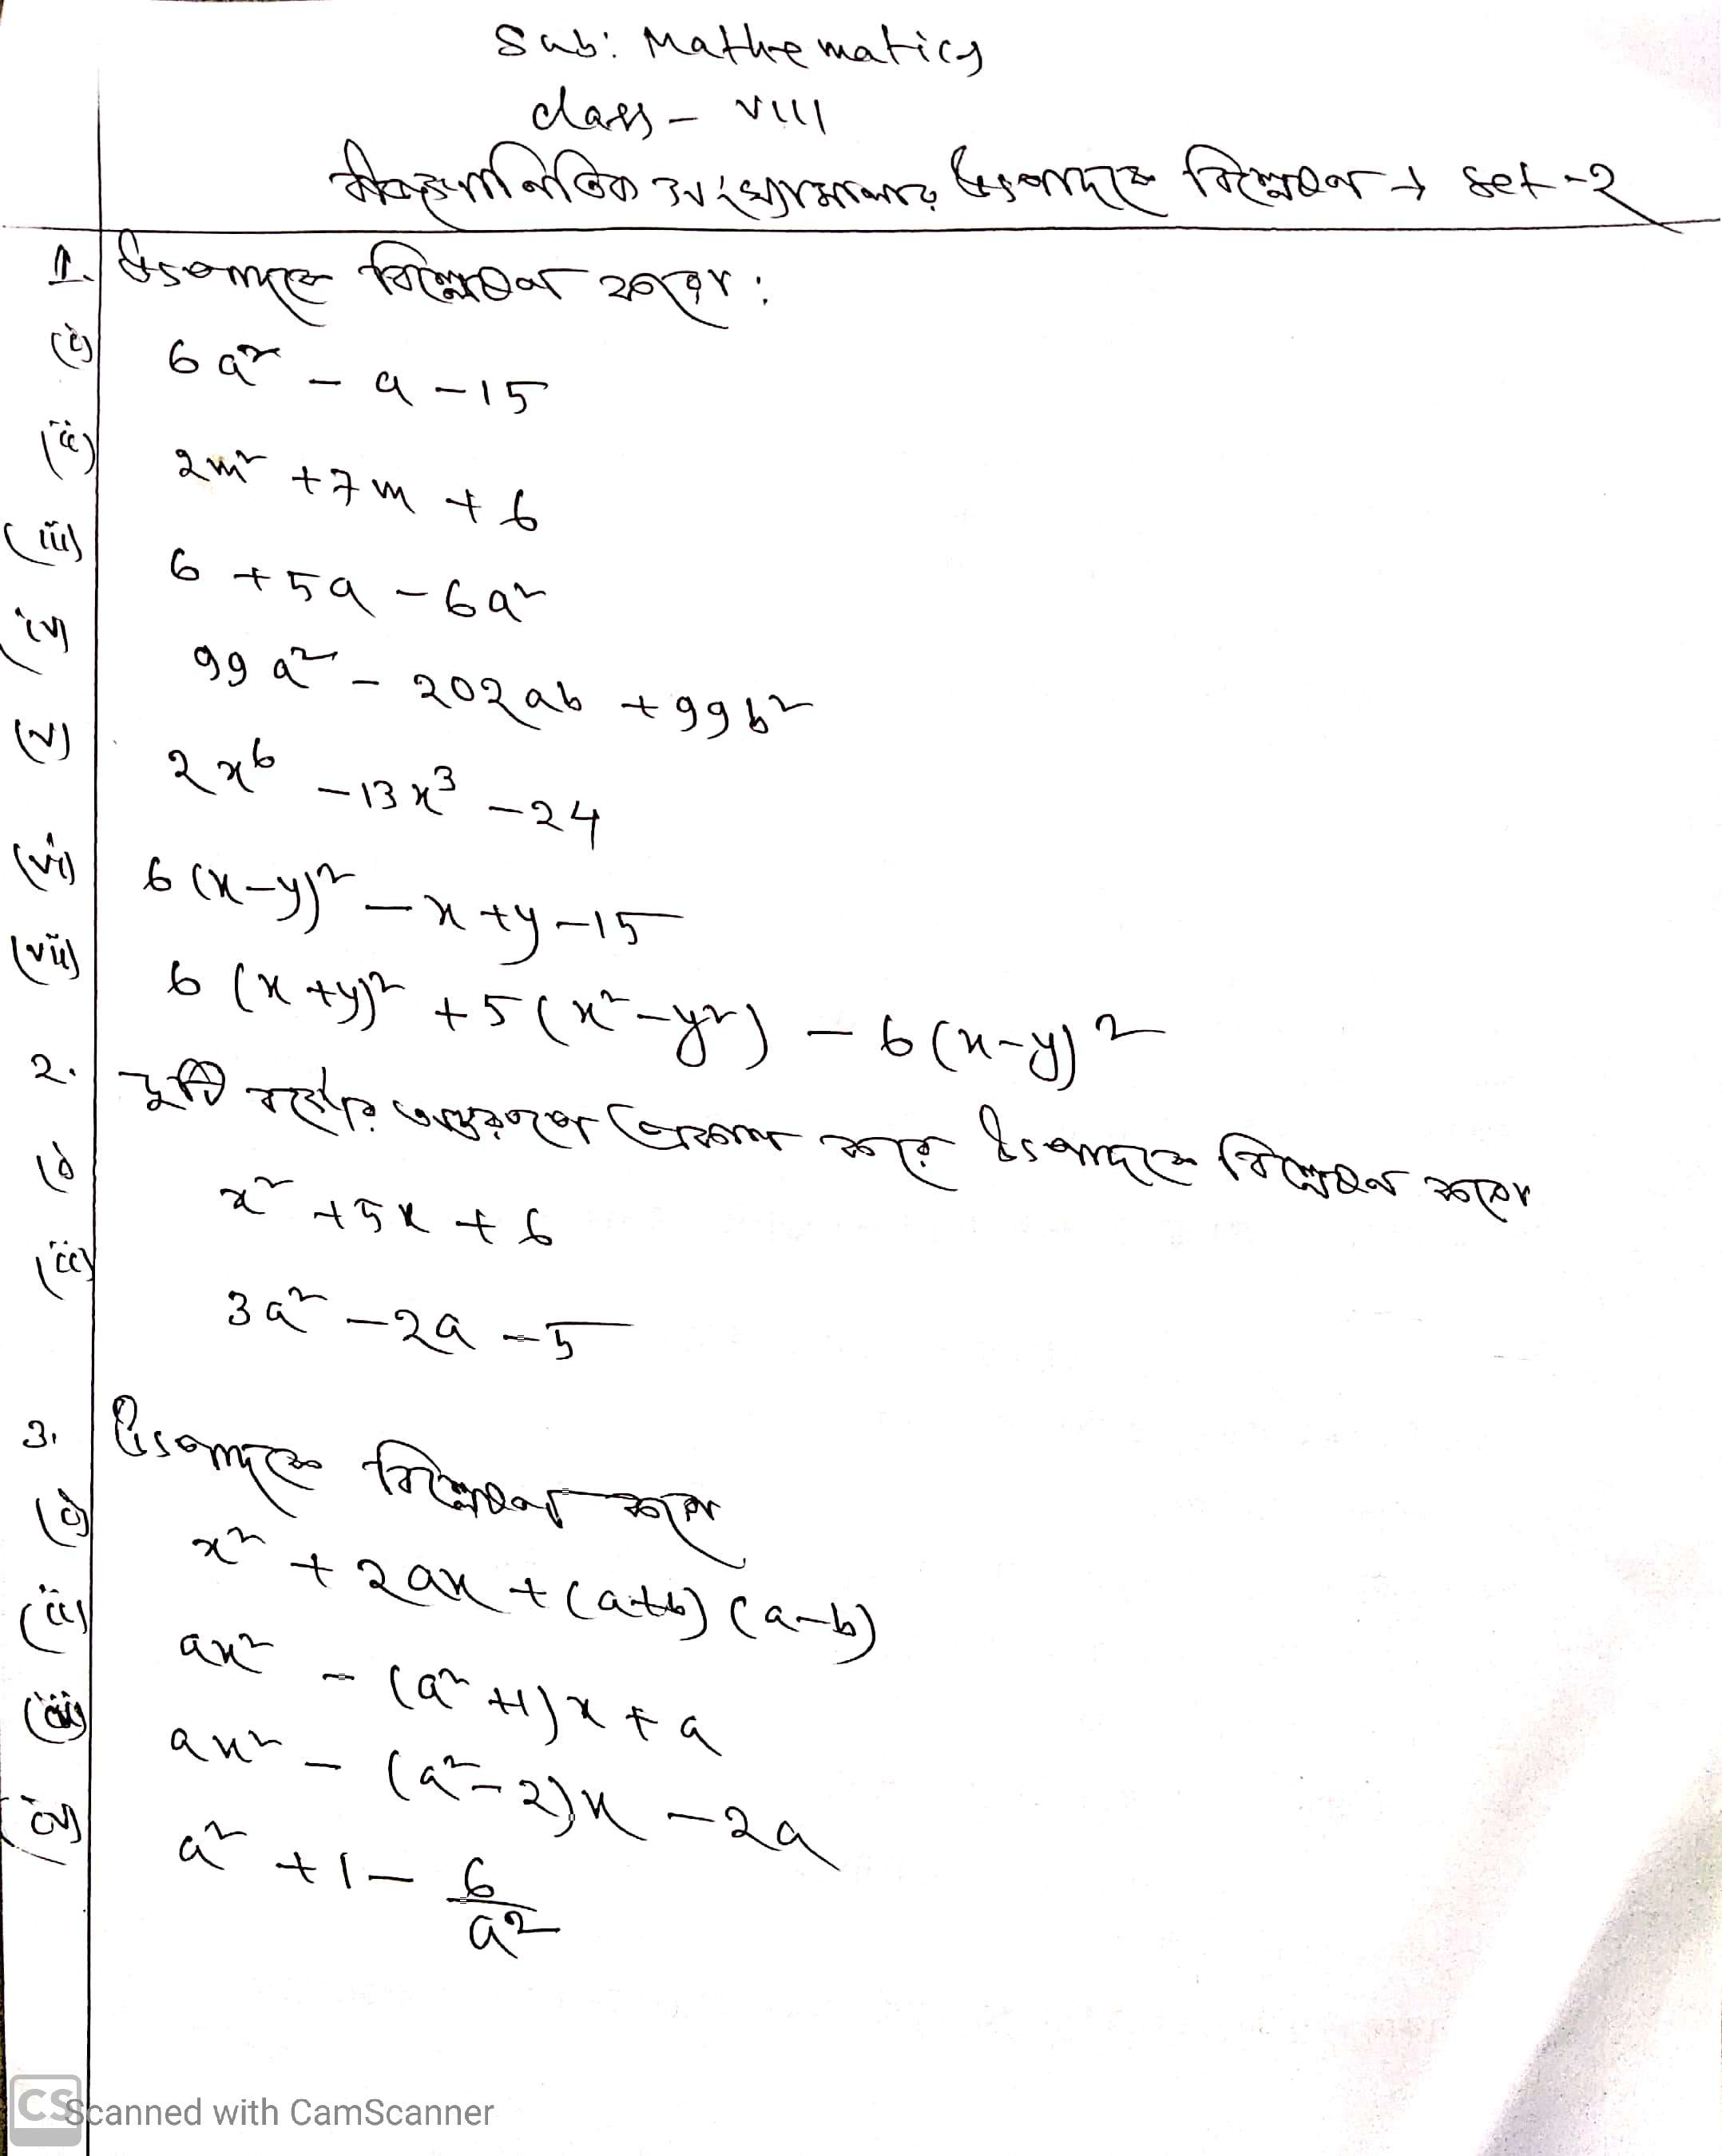 Sub: Mathematics
class - VIII
বীজগাণিতিক সংখ্যামালার উৎপাদকে বিশ্লেষণ → set-2
1. উৎপাদকে বিশ্লেষণ করো :
(i) 6a² - a - 15
(ii) 2m² + 7m + 6
(iii) 6 + 5a - 6a²
(iv) 99a² - 202ab + 99b²
(v) 2x⁶ - 13x³ - 24
(vi) 6(x-y)² - x + y - 15
(vii) 6(x+y)² + 5(x²-y²) - 6(x-y)²
2. দুটি বর্গের অন্তররূপে প্রকাশ করে উৎপাদকে বিশ্লেষণ করো
(i) x² + 5x + 6
(ii) 3a² - 2a - 5
3. উৎপাদকে বিশ্লেষণ করো
(i) x² + 2ax + (a+b)(a-b)
(ii) ax² - (a²+1)x + a
(iii) ax² - (a²-2)x - 2a
(iv) a² + 1 - 6/a²
CS Scanned with CamScanner